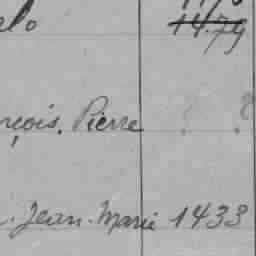 elo 1479
nçois. Pierre ? ?
. Jean-Marie 1433